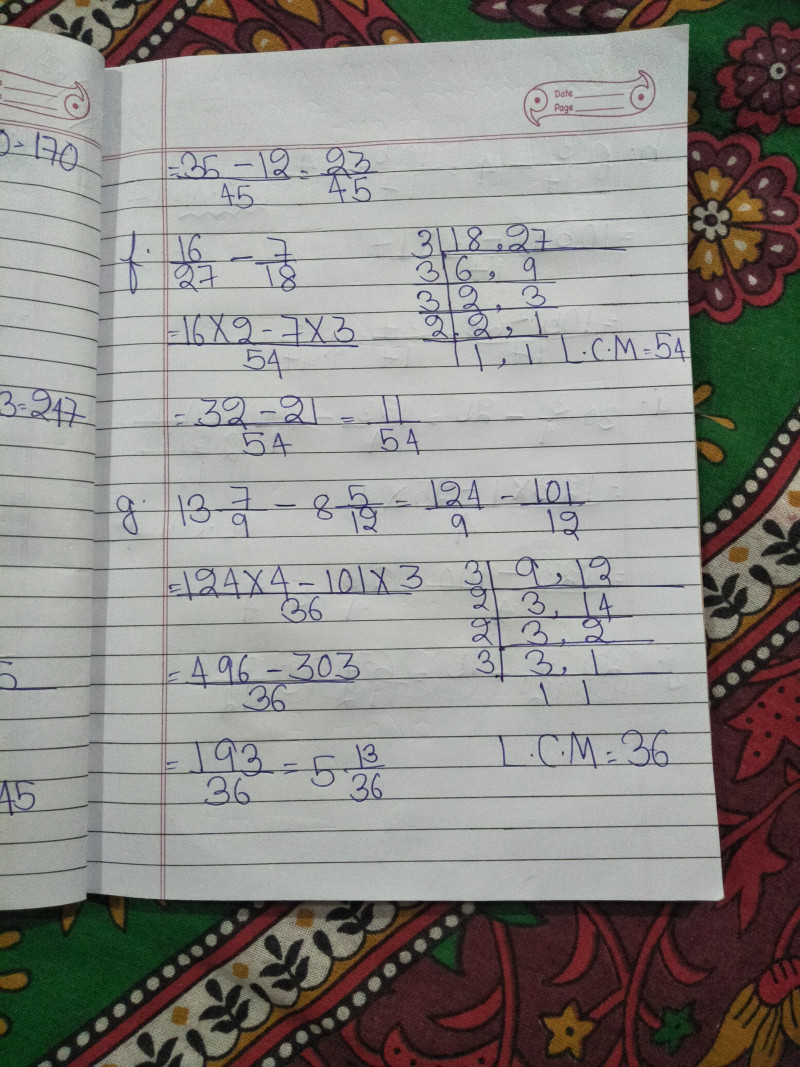 0=170
3=247
5
45
Date
Page
= 35 - 12 / 45 = 23 / 45
f. 16/27 - 7/18
3 | 18, 27
3 | 6, 9
3 | 2, 3
2 | 2, 1
1, 1 L.C.M = 54
= 16 X 2 - 7 X 3 / 54
= 32 - 21 / 54 = 11 / 54
g. 13 7/9 - 8 5/12 = 124/9 - 101/12
= 124 X 4 - 101 X 3 / 36
3 | 9, 12
2 | 3, 14
2 | 3, 2
3 | 3, 1
1 1
= 496 - 303 / 36
= 193 / 36 = 5 13/36
L.C.M = 36